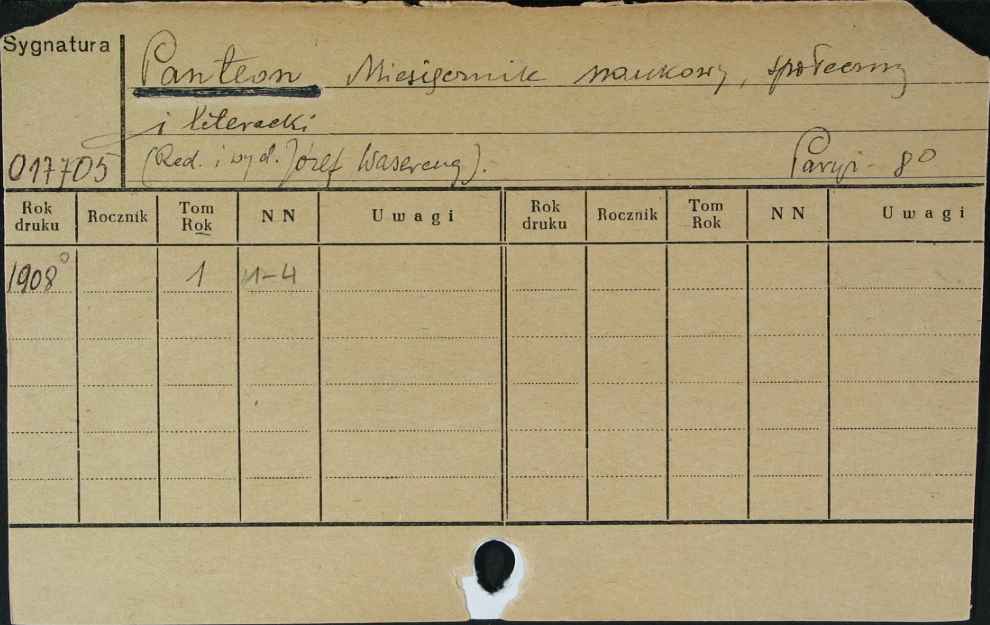 Sygnatura
Panteon Miesięcznik naukowy, społeczny
i literacki
017705 (Red. i wyd. Józef Wasercug). Paryż - 8°
Rok druku Rocznik Tom Rok NN Uwagi Rok druku Rocznik Tom Rok NN Uwagi
1908° 1 1-4